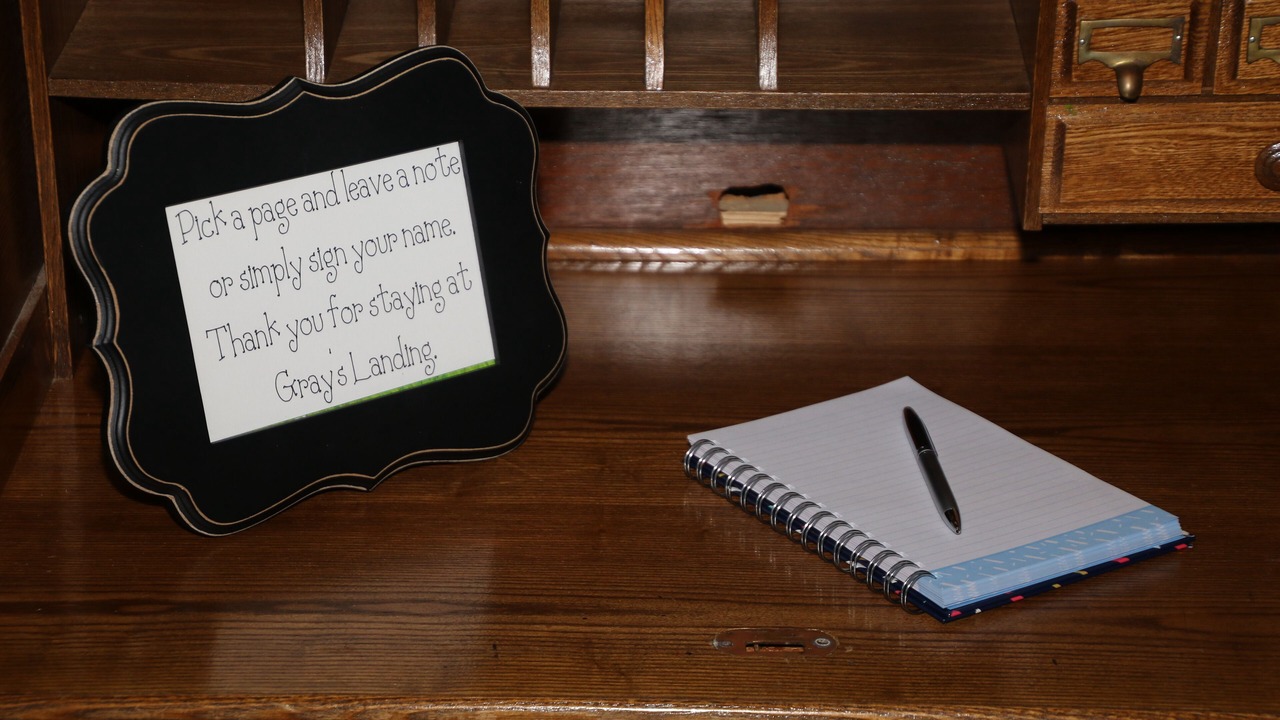 Pick a page and leave a note
or simply sign your name.
Thank you for staying at
Gray's Landing.